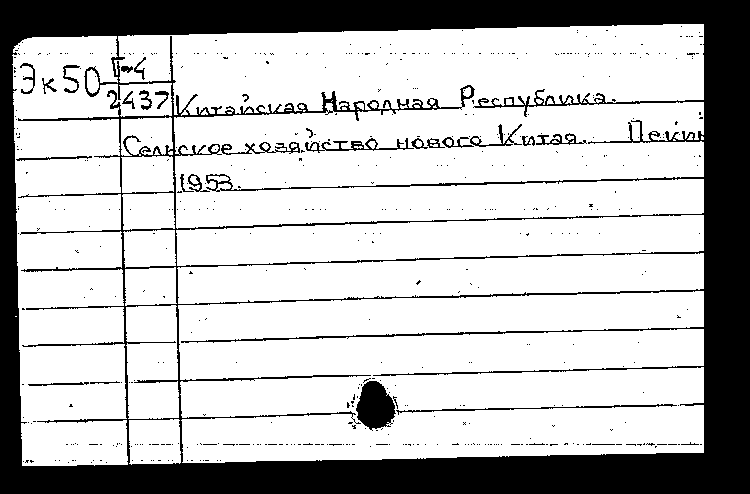 Эк50 Г-4
2437 Китайская Народная Республика.
Сельское хозяйство нового Китая. Пекин
1953.